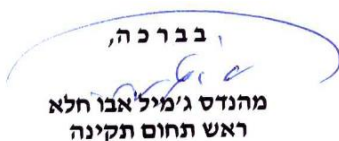 בברכה,
מהנדס ג'מיל אבו חלא
ראש תחום תקינה